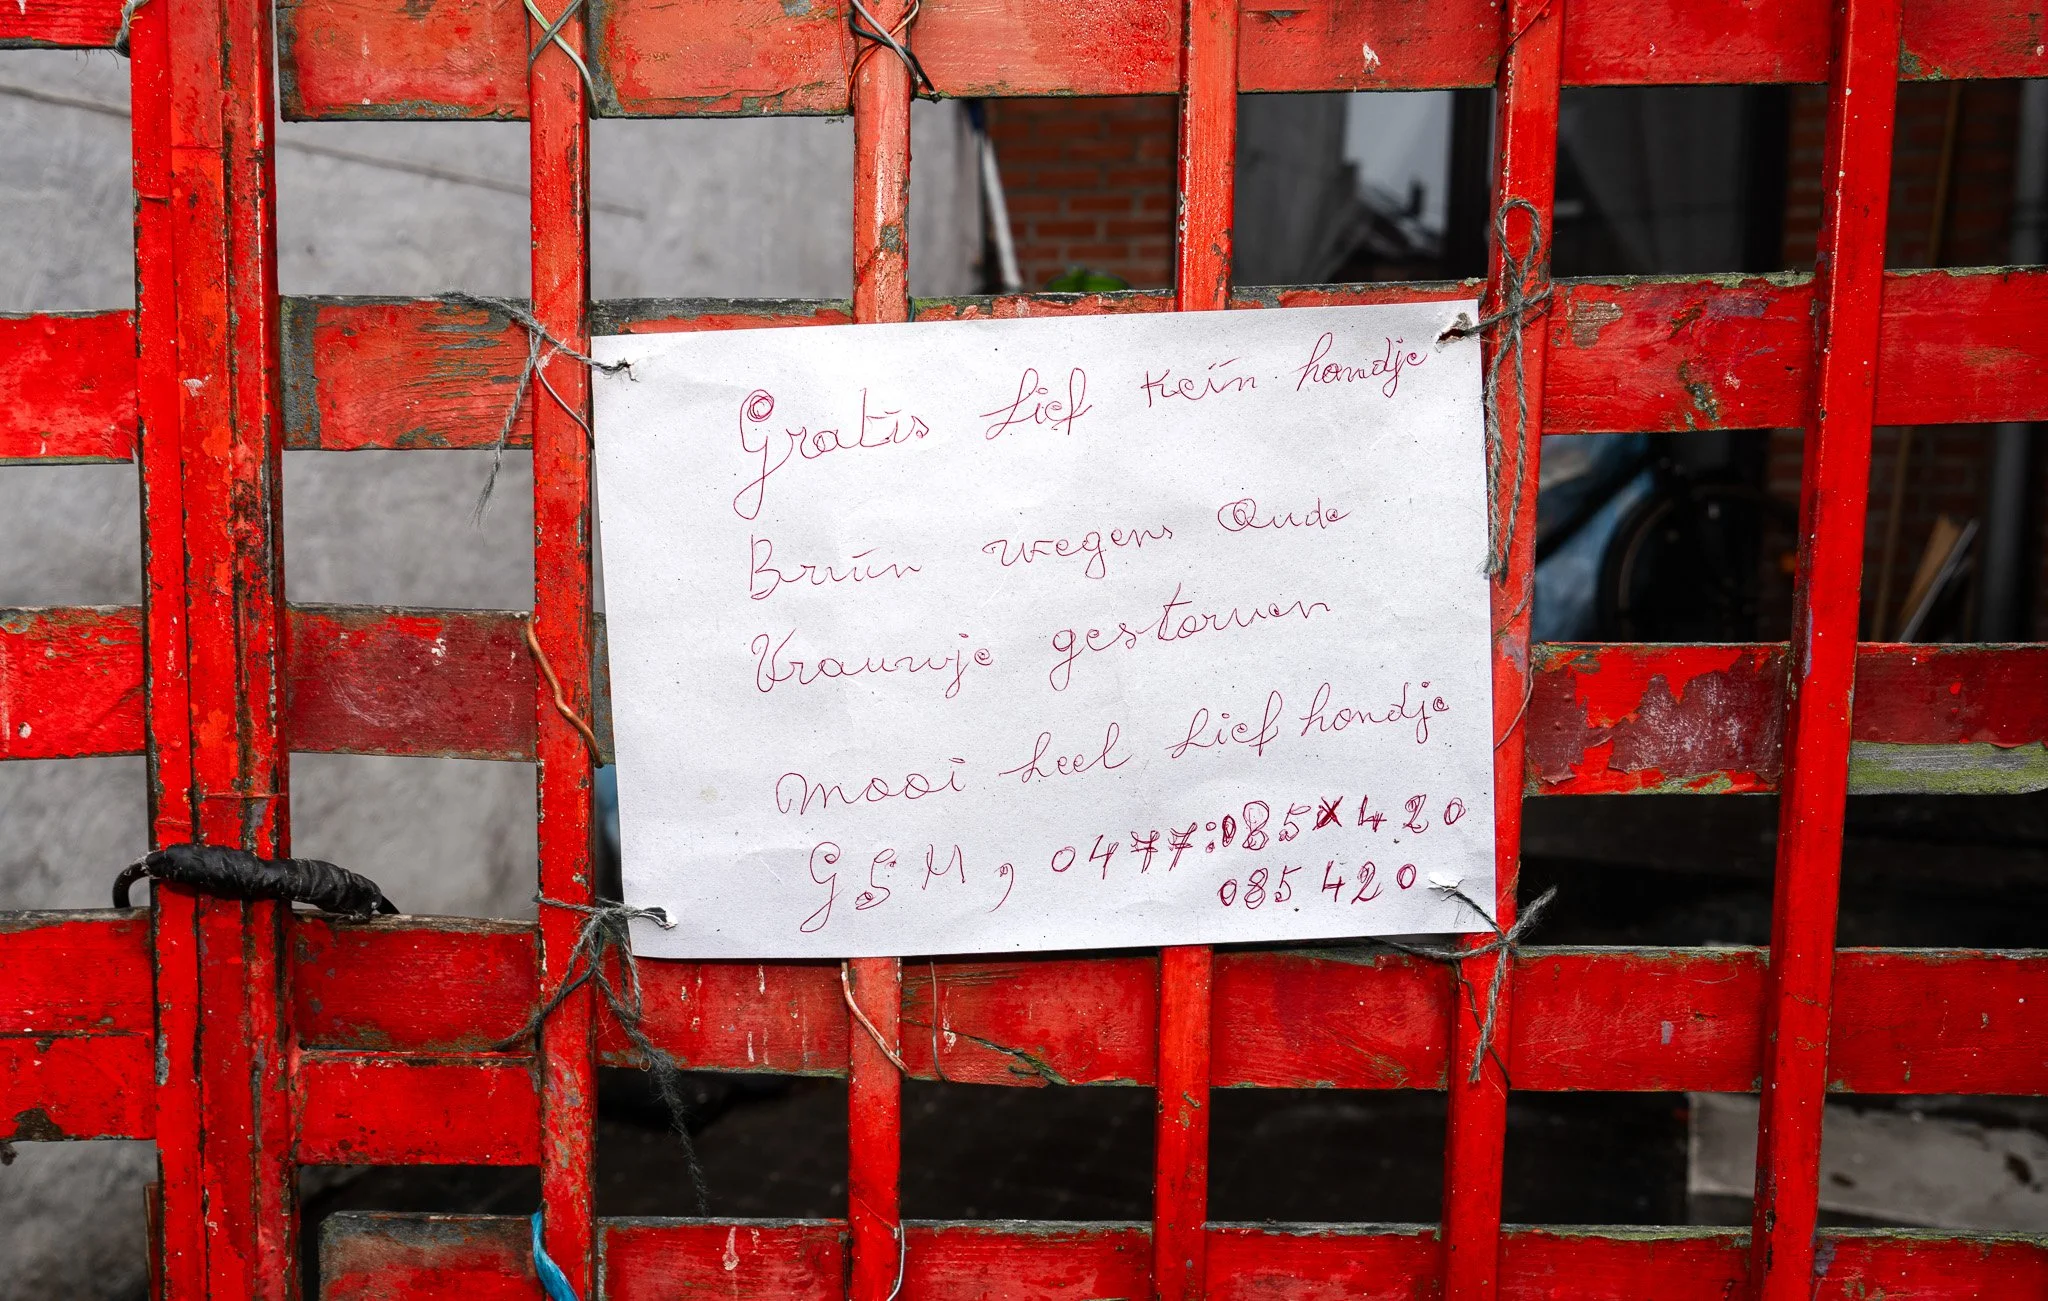 Gratis Lief Kein hondje
Bruin wegens Oude
Vrauwje gestorven
Mooi heel Lief hondje
GSM, 0477:085x420
085420